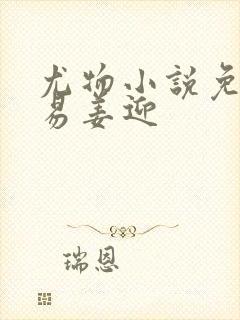 尤物小說免
易姜迎
瑞恩